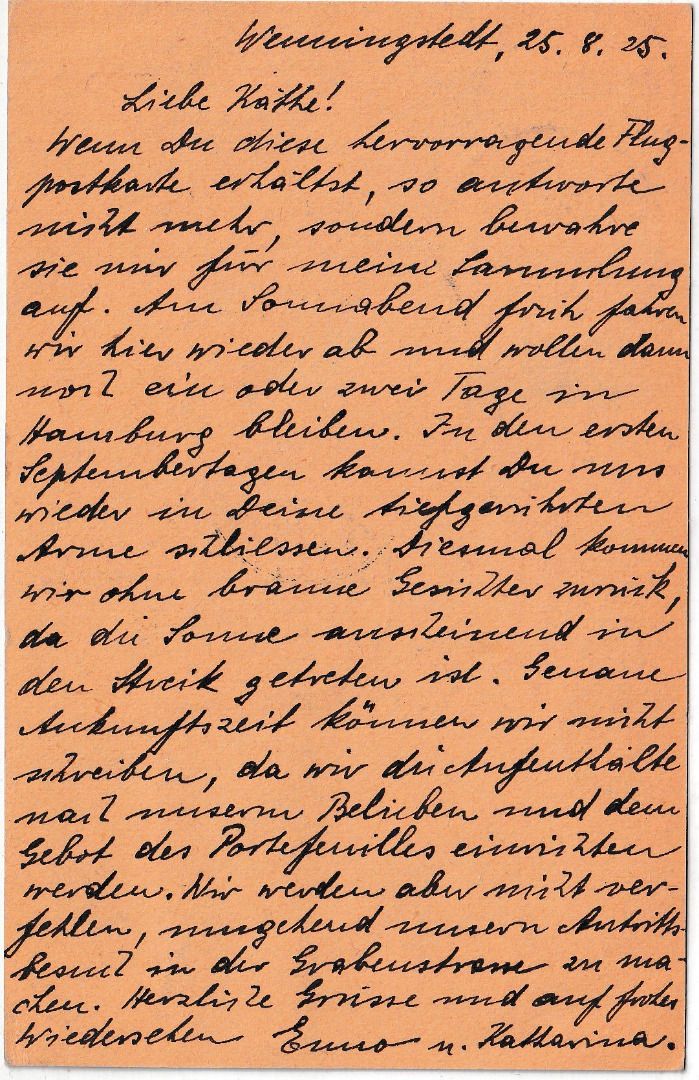 Wenningstedt, 25. 8. 25.
Liebe Käthe!
Wenn Du diese hervorragende Flug-
postkarte erhältst, so antworte
nicht mehr, sondern bewahre
sie mir für meine Sammlung
auf. Am Sonnabend früh fahren
wir hier wieder ab und wollen dann
noch ein oder zwei Tage in
Hamburg bleiben. In den ersten
Septembertagen kannst Du uns
wieder in Deine tiefgerührten
Arme schliessen. Diesmal kommen
wir ohne braune Gesichter zurück,
da die Sonne anscheinend in
den Streik getreten ist. Genaue
Ankunftszeit können wir nicht
schreiben, da wir die Aufenthalte
nach unserm Belieben und dem
Gebot des Portefeuilles einrichten
werden. Wir werden aber nicht ver-
fehlen, umgehend unsern Antritts-
besuch in der Grabenstrasse zu ma-
chen. Herzliche Grüsse und auf frohes
Wiedersehen Enno u. Katharina.